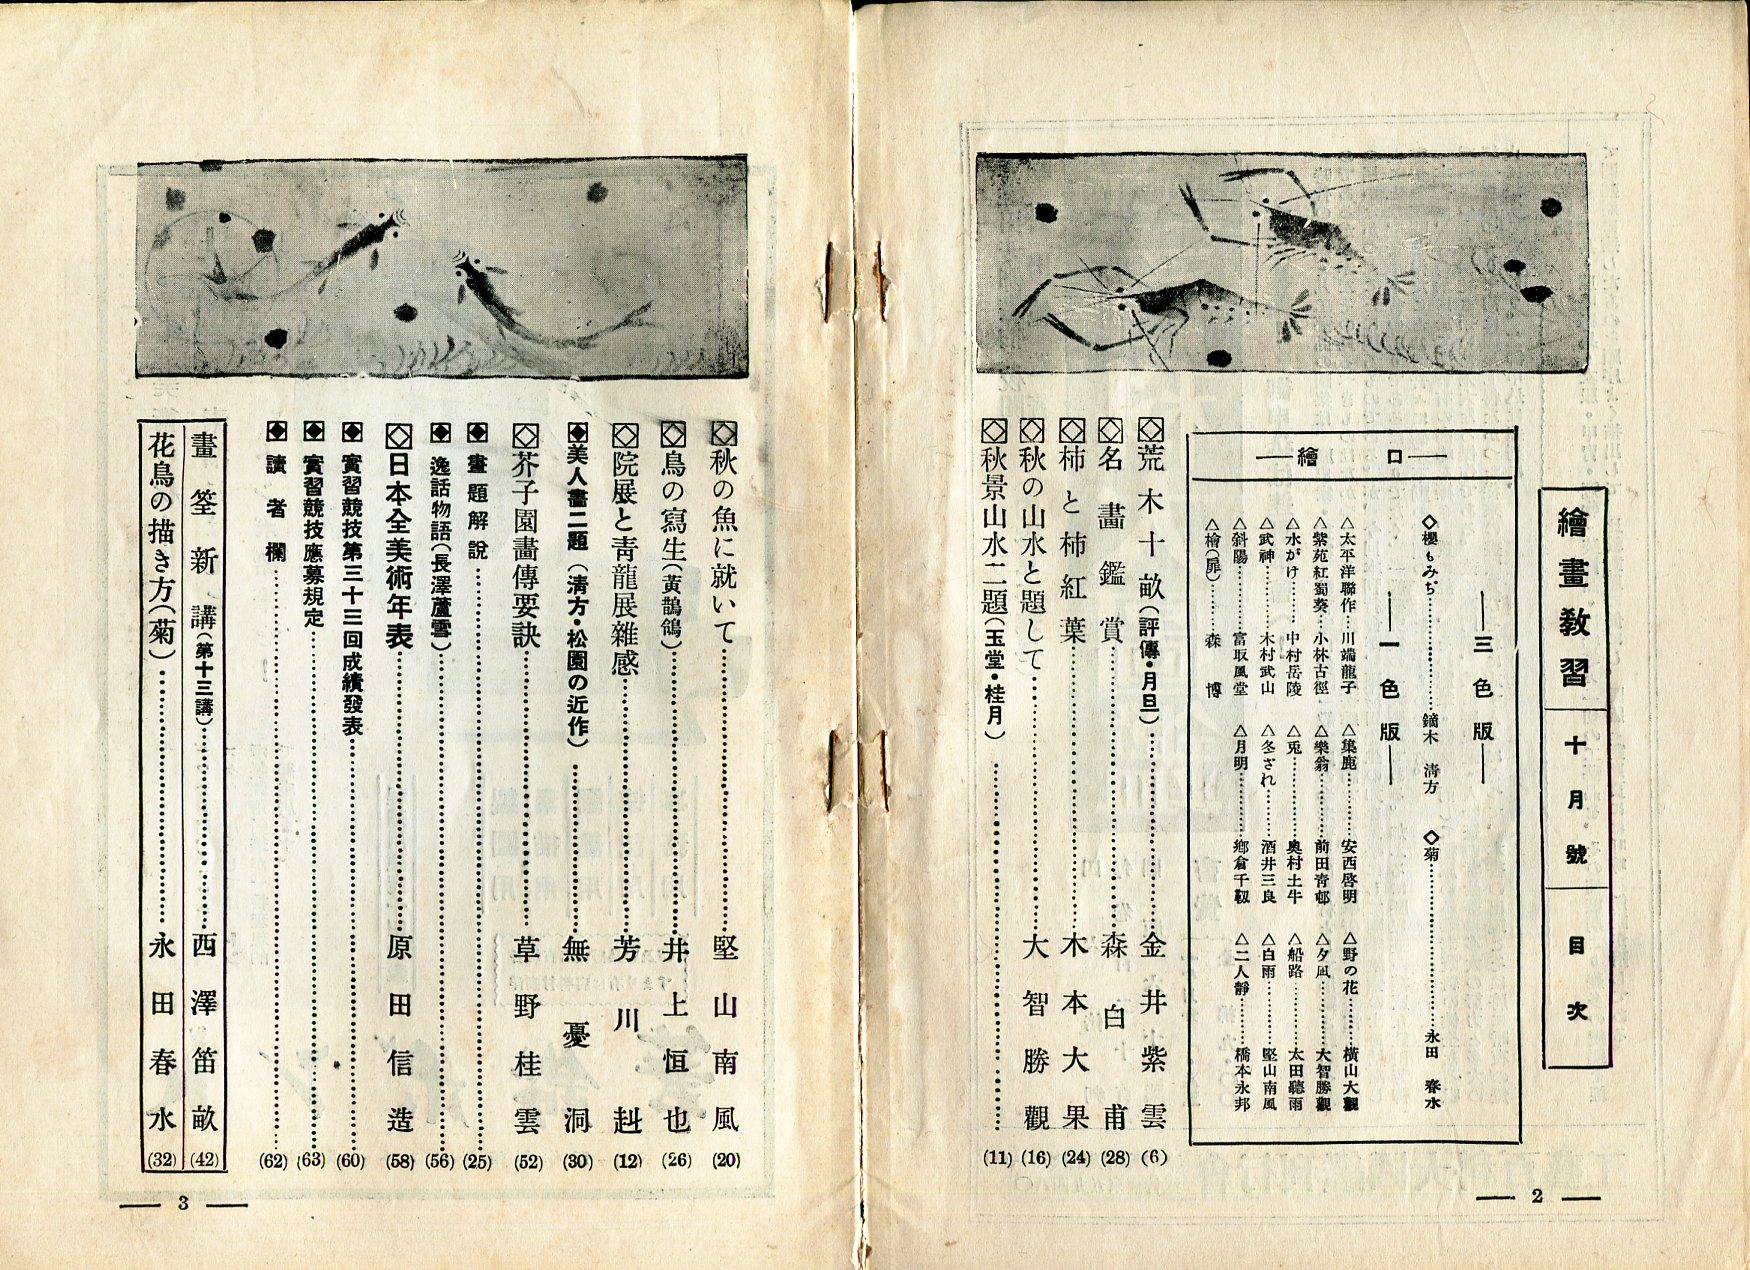 繪畫敎習 十月號 目次
口繪
三色版
◇櫻もみぢ……鏑木 淸方 ◇菊……永田 春水
一色版
△太平洋聯作…川端龍子 △集鹿……安西啓明 △野の花……橫山大觀
△紫苑紅蜀葵…小林古徑 △樂翁……前田靑邨 △夕凪……大智勝觀
△水がけ……中村岳陵 △兎……奧村土牛 △船路……太田聽雨
△武神……木村武山 △冬ざれ……酒井三良 △白雨……堅山南風
△斜陽……富取風堂 △月明……鄕倉千靱 △二人靜……橋本永邦
△檜(扉)……森 博
荒木十畝(評傳・月旦)……金井紫雲 (6)
名畫鑑賞……森白甫 (28)
柿と柿紅葉……木本大果 (24)
秋の山水と題して……大智勝觀 (16)
秋景山水二題(玉堂・桂月)……(11)
2
秋の魚に就いて……堅山南風 (20)
鳥の寫生(黃鶺鴒)……井上恒也 (26)
院展と靑龍展雜感……芳川赳 (12)
美人畫二題(淸方・松園の近作)……無憂洞 (30)
芥子園畫傳要訣……草野桂雲 (52)
畫題解說……(25)
逸話物語(長澤蘆雪)……(56)
日本全美術年表……原田信造 (58)
實習競技第三十三回成績發表……(60)
實習競技應募規定……(63)
讀者欄……(62)
畫筌新講(第十三講)……西澤笛畝 (42)
花鳥の描き方(菊)……永田春水 (32)
3